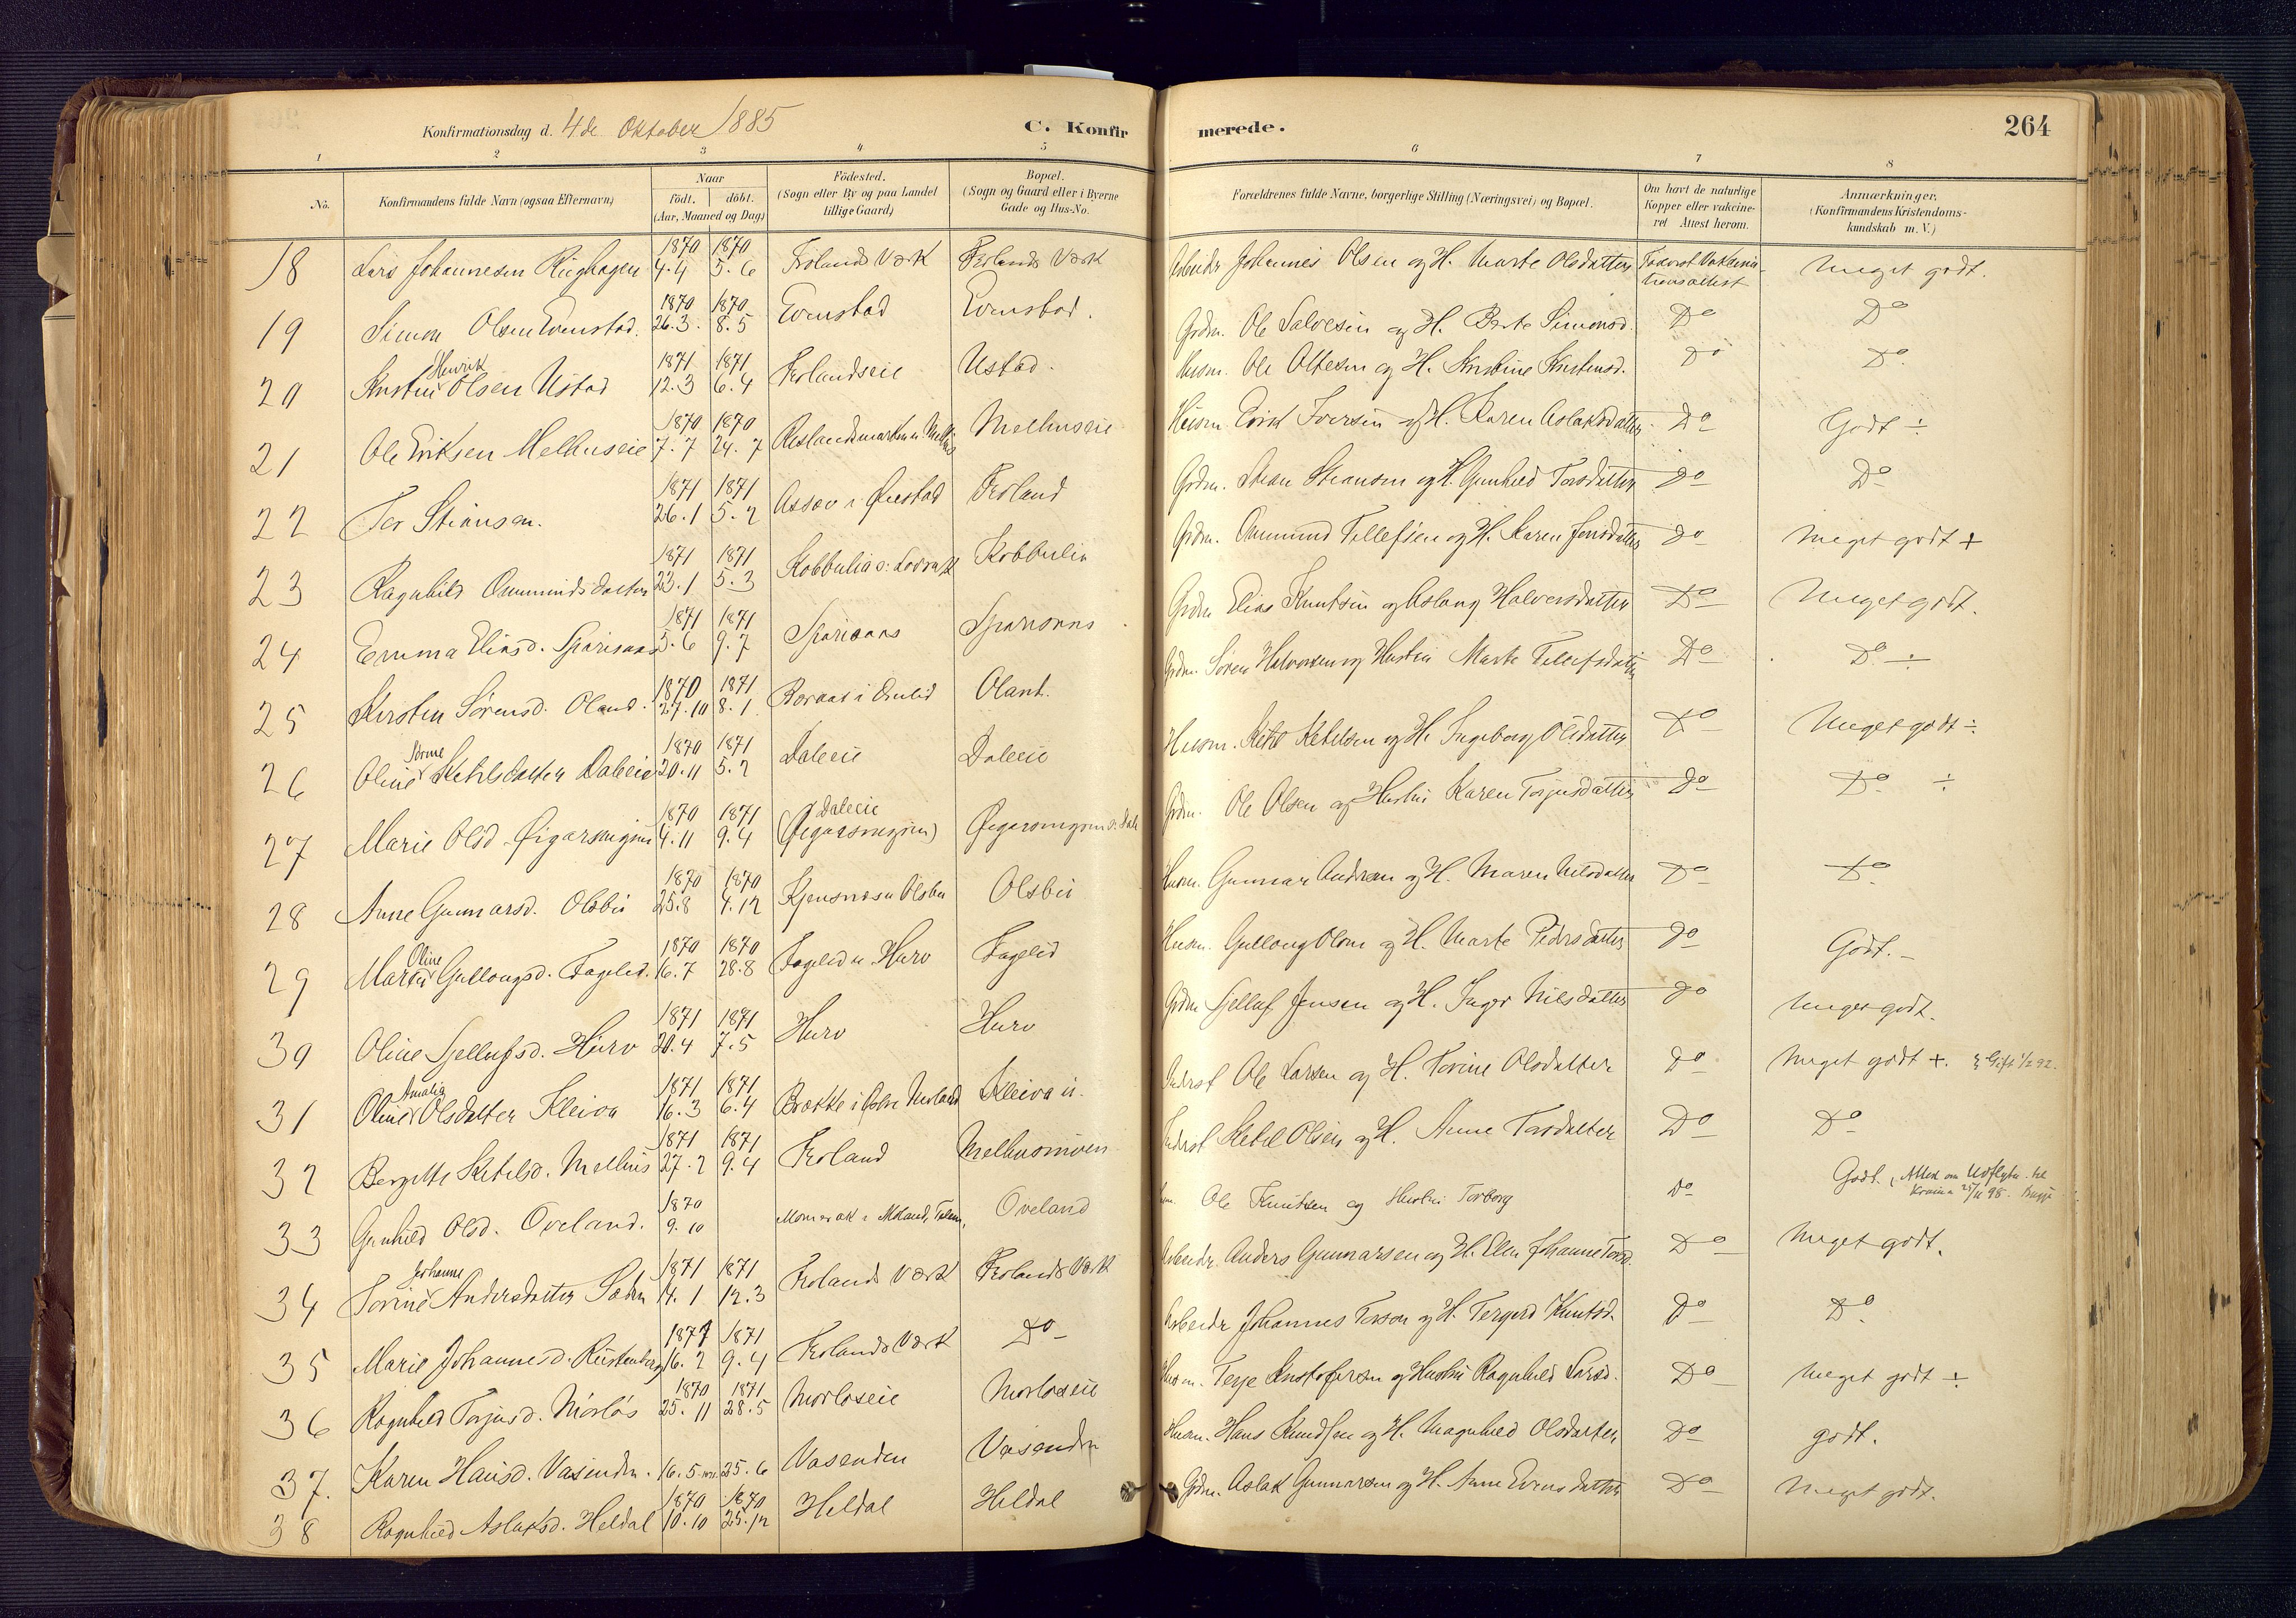 Konfirmationsdag d. 4de Oktober 1885 C. Konfir merede. 264
1 2 3 4 5 6 7 8
No.
Konfirmandens fulde Navn (ogsaa Efternavn)
Naar
födt. döbt.
(Aar, Maaned og Dag)
Födested.
(Sogn eller By og paa Landet
tillige Gaard)
Bopæl.
(Sogn og Gaard eller i Byerne
Gade og Hus-No.
Forældrenes fulde Navne, borgerlige Stilling (Næringsvei) og Bopæl.
Om havt de naturlige
Kopper eller vakcine-
ret Attest herom.
Anmærkninger.
(Konfirmandens Kristendoms-
kundskab m. V.)
1870 1870
18 Lars Johannesen 4.4 5.6 Frolands Værk Frolands Værk Arbeider Johannes Olsen og H. Marte Olsdatter Meget godt.
1870 1870
19 Simon Olsen Evenstad. 26.3. 8.5 Evenstad Evenstad. Grdm. Ole Salvesen og H. Berte Simonsd. Do Do
Henrik 1871 1871
20 Olsen Ustad 12.3 6.4 Frolandseie Ustad. Husm. Ole og H. Do Do.
1870 1870
21 Ole Eriksen Melhuseie 7.7 24.7 Melhuseie Husm. Erik Iversen og H. Karen Aslaksdatter Do Godt ÷
1871 1871
22 Ter Stiansen. 26.1 5.2 Assev i Øiestad Froland Grdm. Stian Stiansen og H. Gunhild Torsdatter Do Do
1871 1871
23 Ragnhild Ommundsdatter 23.1 5.3 Kobbulia Grdm. Ommund Tellefsen og H. Karen Jensdatter Do Meget godt +
1871 1871
24 Emma Eliasd. 5.6 9.7 Grdm Elias Knutsen og Aslaug Halvorsdatter Do Meget godt.
1870 1871
25 Kirsten Sørensd. Oland. 27.10 8.1. Oland. Grdm. Søren Halvorsen og Hustru Marte Tellefsdatter Do Do ÷
1870 1871
26 Oline Ketilsdatter Daleeie 20.11 5.2 Daleeie Daleeie Husm. Ketil Ketelsen og H. Ingeborg Olsdatter Do Meget godt ÷
1870 1871 Daleeie
27 Marie Olsd 4.11 9.4 Grdm. Ole Olsen og Hustru Karen Torjusdatter Do Do ÷
1870 1870
28 Anne Gunnarsd. Olsbu 25.8 4.12 Olsbu Husm. Gunnar Andersen og H. Maren Nilsdatter Do Do
Oline 1870 1870
29 Marte Gullougsd. Fagelid. 16.7 28.8 Fagelid u. Hurv Fagelid Husm. Gulloug Olsen og H. Marte Pedersdatter Do Godt.
1871 1871
30 Oline Sjellufsd. Hurv 20.4 7.5 Hurv Hurv Grdm Sjelluf Jensen og H. Inger Nilsdatter Do Meget godt.
Amalia 1871 1871
31 Oline Olsdatter Kleiva 16.3 6.4 Kleiva Inderst Ole Larsen og H. Torine Olsdatter Do Meget godt +. Gift 92.
1871 1871
32 Bergitte Ketelsd. Melhus 27.2 9.4 Froland Melhusmoen Inderst Ketel Olsen og H. Anne Torsdatter Do Do
1870
33 Gunhild Olsd. Oveland. 9.10 Oveland Ole Knutsen og Hustru Torborg Do Godt. Attest om Udflytn. til
Johanne 1871 1871
34 Torine Andersdatter 14.1 12.3 Frolands Værk Frolands Værk Arbeidr. Anders Gunnarsen og H. Ellen Johanne Do Meget godt.
1871 1871
35 Marie Johannesd. 16.2 9.4 Frolands Værk Do Arbeidr Johannes Terson og H. Tergerd Knutsd. Do Do.
1870 1871
36 Ragnhild Torjusd. Morløs 25.11 28.5 Morløseie Morløseie Husm. Terje Kristofersen og Hustru Ragnhild Larsd. Do Meget godt ÷
37. Karen Hansd. Vasenden. 16.5 25.6 Vasenden Vasenden Husm. Hans Knudsen og H. Magnhild Olsdatter Do godt.
1870 1870
38 Ragnhild Aslaksd. Heldal 10.10 25.12 Heldal Heldal Grdm. Aslak Gunnarsen og H. Anne Evensdatter Do Meget godt.